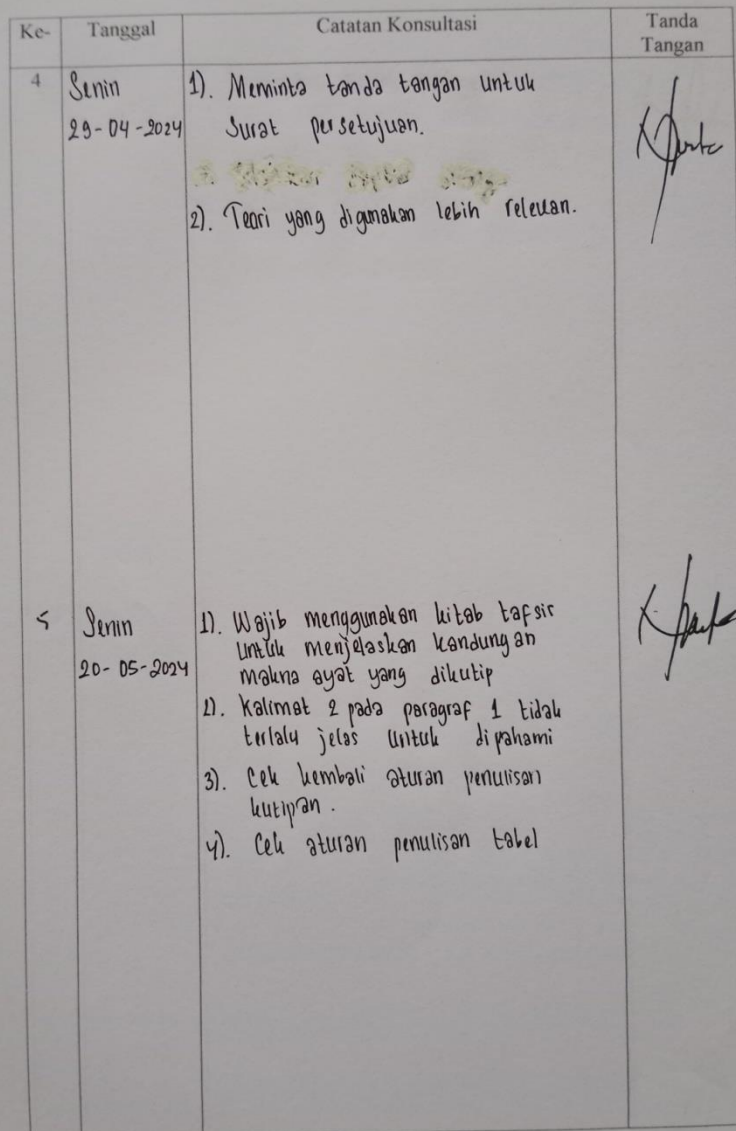 Ke- Tanggal Catatan Konsultasi Tanda Tangan
4 Senin 1). Meminta tanda tangan untuk
29-04-2024 Surat persetujuan.
2). Teori yang digunakan lebih relevan.
5 Senin 1). Wajib menggunakan kitab tafsir
untuk menjelaskan kandungan
20-05-2024 makna ayat yang dikutip
2). Kalimat 2 pada paragraf 1 tidak
terlalu jelas untuk dipahami
3). Cek kembali aturan penulisan
kutipan.
4). Cek aturan penulisan tabel